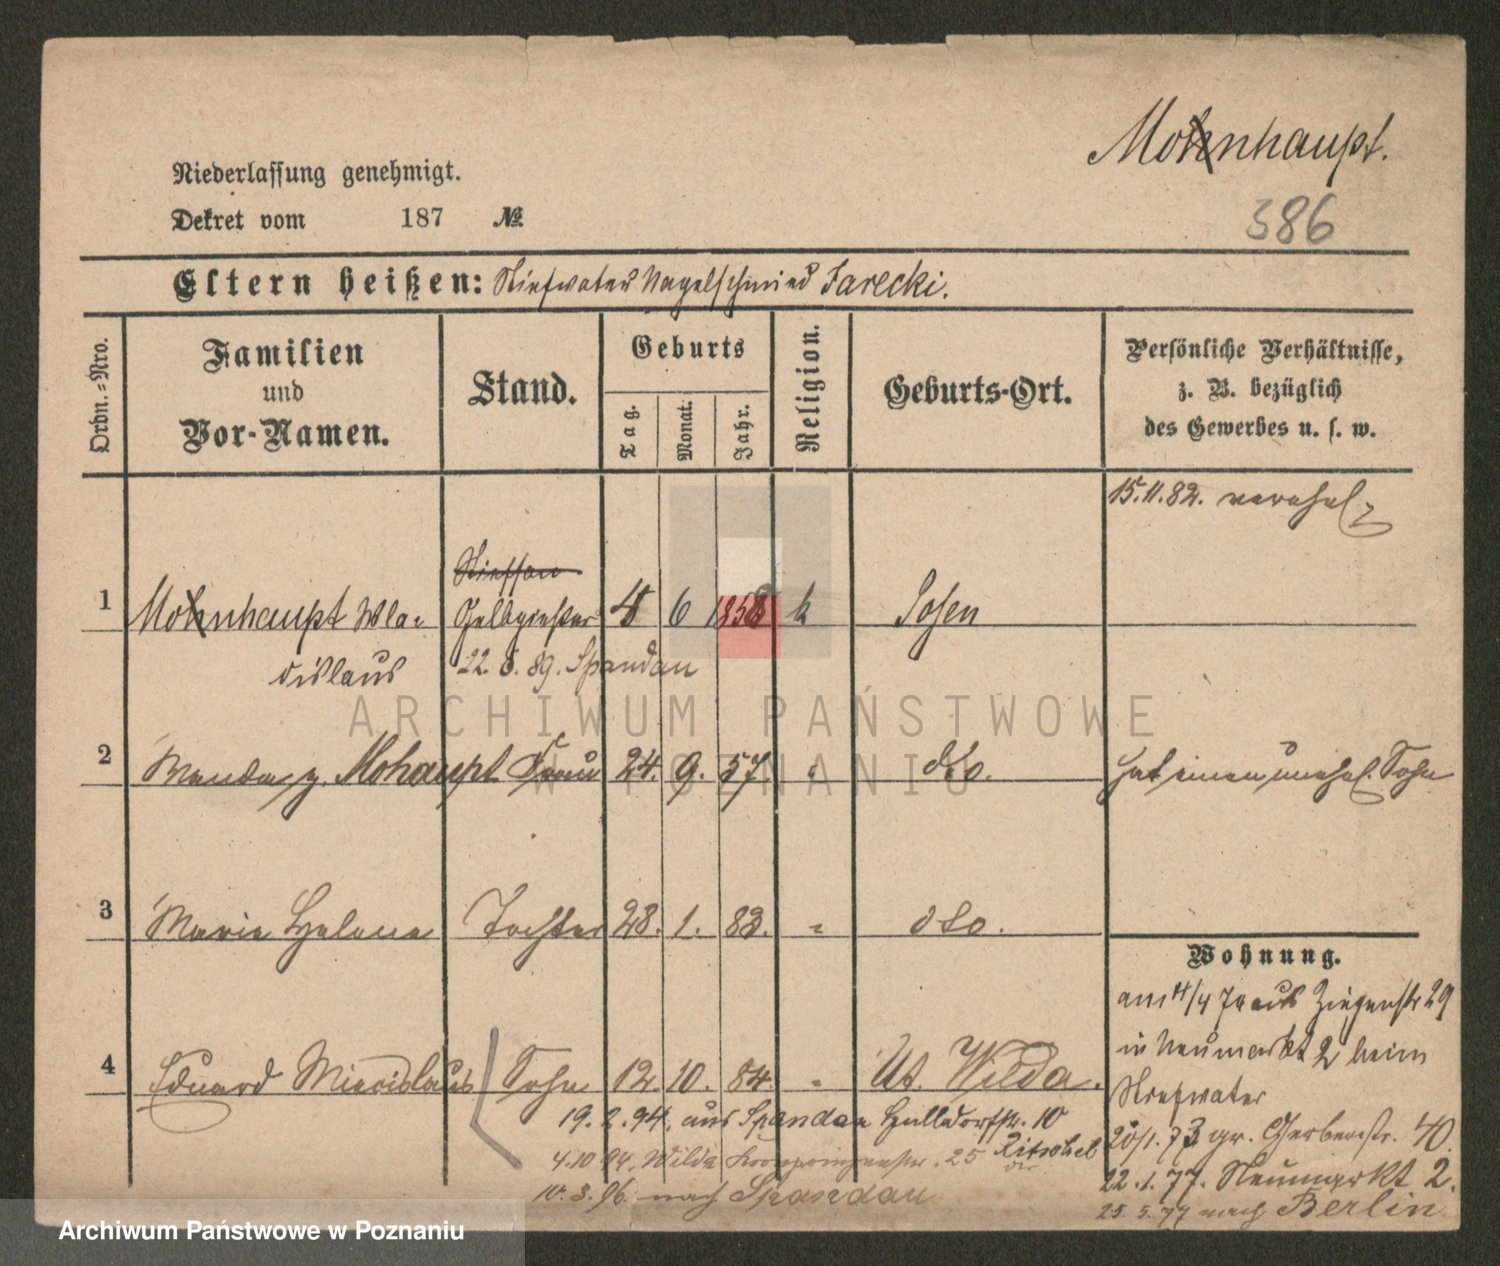 Mohnhaupt.
386
Niederlassung genehmigt.
Dekret vom 187 №
Eltern heißen: Stiefvater Nagelschmied Jarecki.
Ordn.-Nro.
Familien
und
Vor-Namen.
Stand.
Geburts
Tag.
Monat.
Jahr.
Religion.
Geburts-Ort.
Persönliche Verhältnisse,
z. B. bezüglich
des Gewerbes u. s. w.
15.11.82. verehel.
Stiefsohn
1 Mohnhaupt Wla- Gelbgießer 6 1858 k Posen
dislaus 22. 8. 89. Spandau
2 Wanda g. Mohaupt Frau 24. 9. 57. " dto. hat einen unehel. Sohn
3 Marie Helene Tochter 28. 1. 83. " dto.
Wohnung.
am 4/4 72 aus Ziegenstr 29
in Neumarkt 2 beim
Stiefvater
4 Eduard Miecislaus Sohn 12. 10. 84. " Ut. Wilda.
19. 2. 94. aus Spandau
4.10 94. Wilda Kronprinzenstr. 25 Ritschel
10. 3. 96. nach Spandau
20/1. 73 gr. Gerberstr. 40.
22. 1. 77. Neumarkt 2.
25. 5. 77 nach Berlin
ARCHIWUM PAŃSTWOWE
W POZNANIU
Archiwum Państwowe w Poznaniu